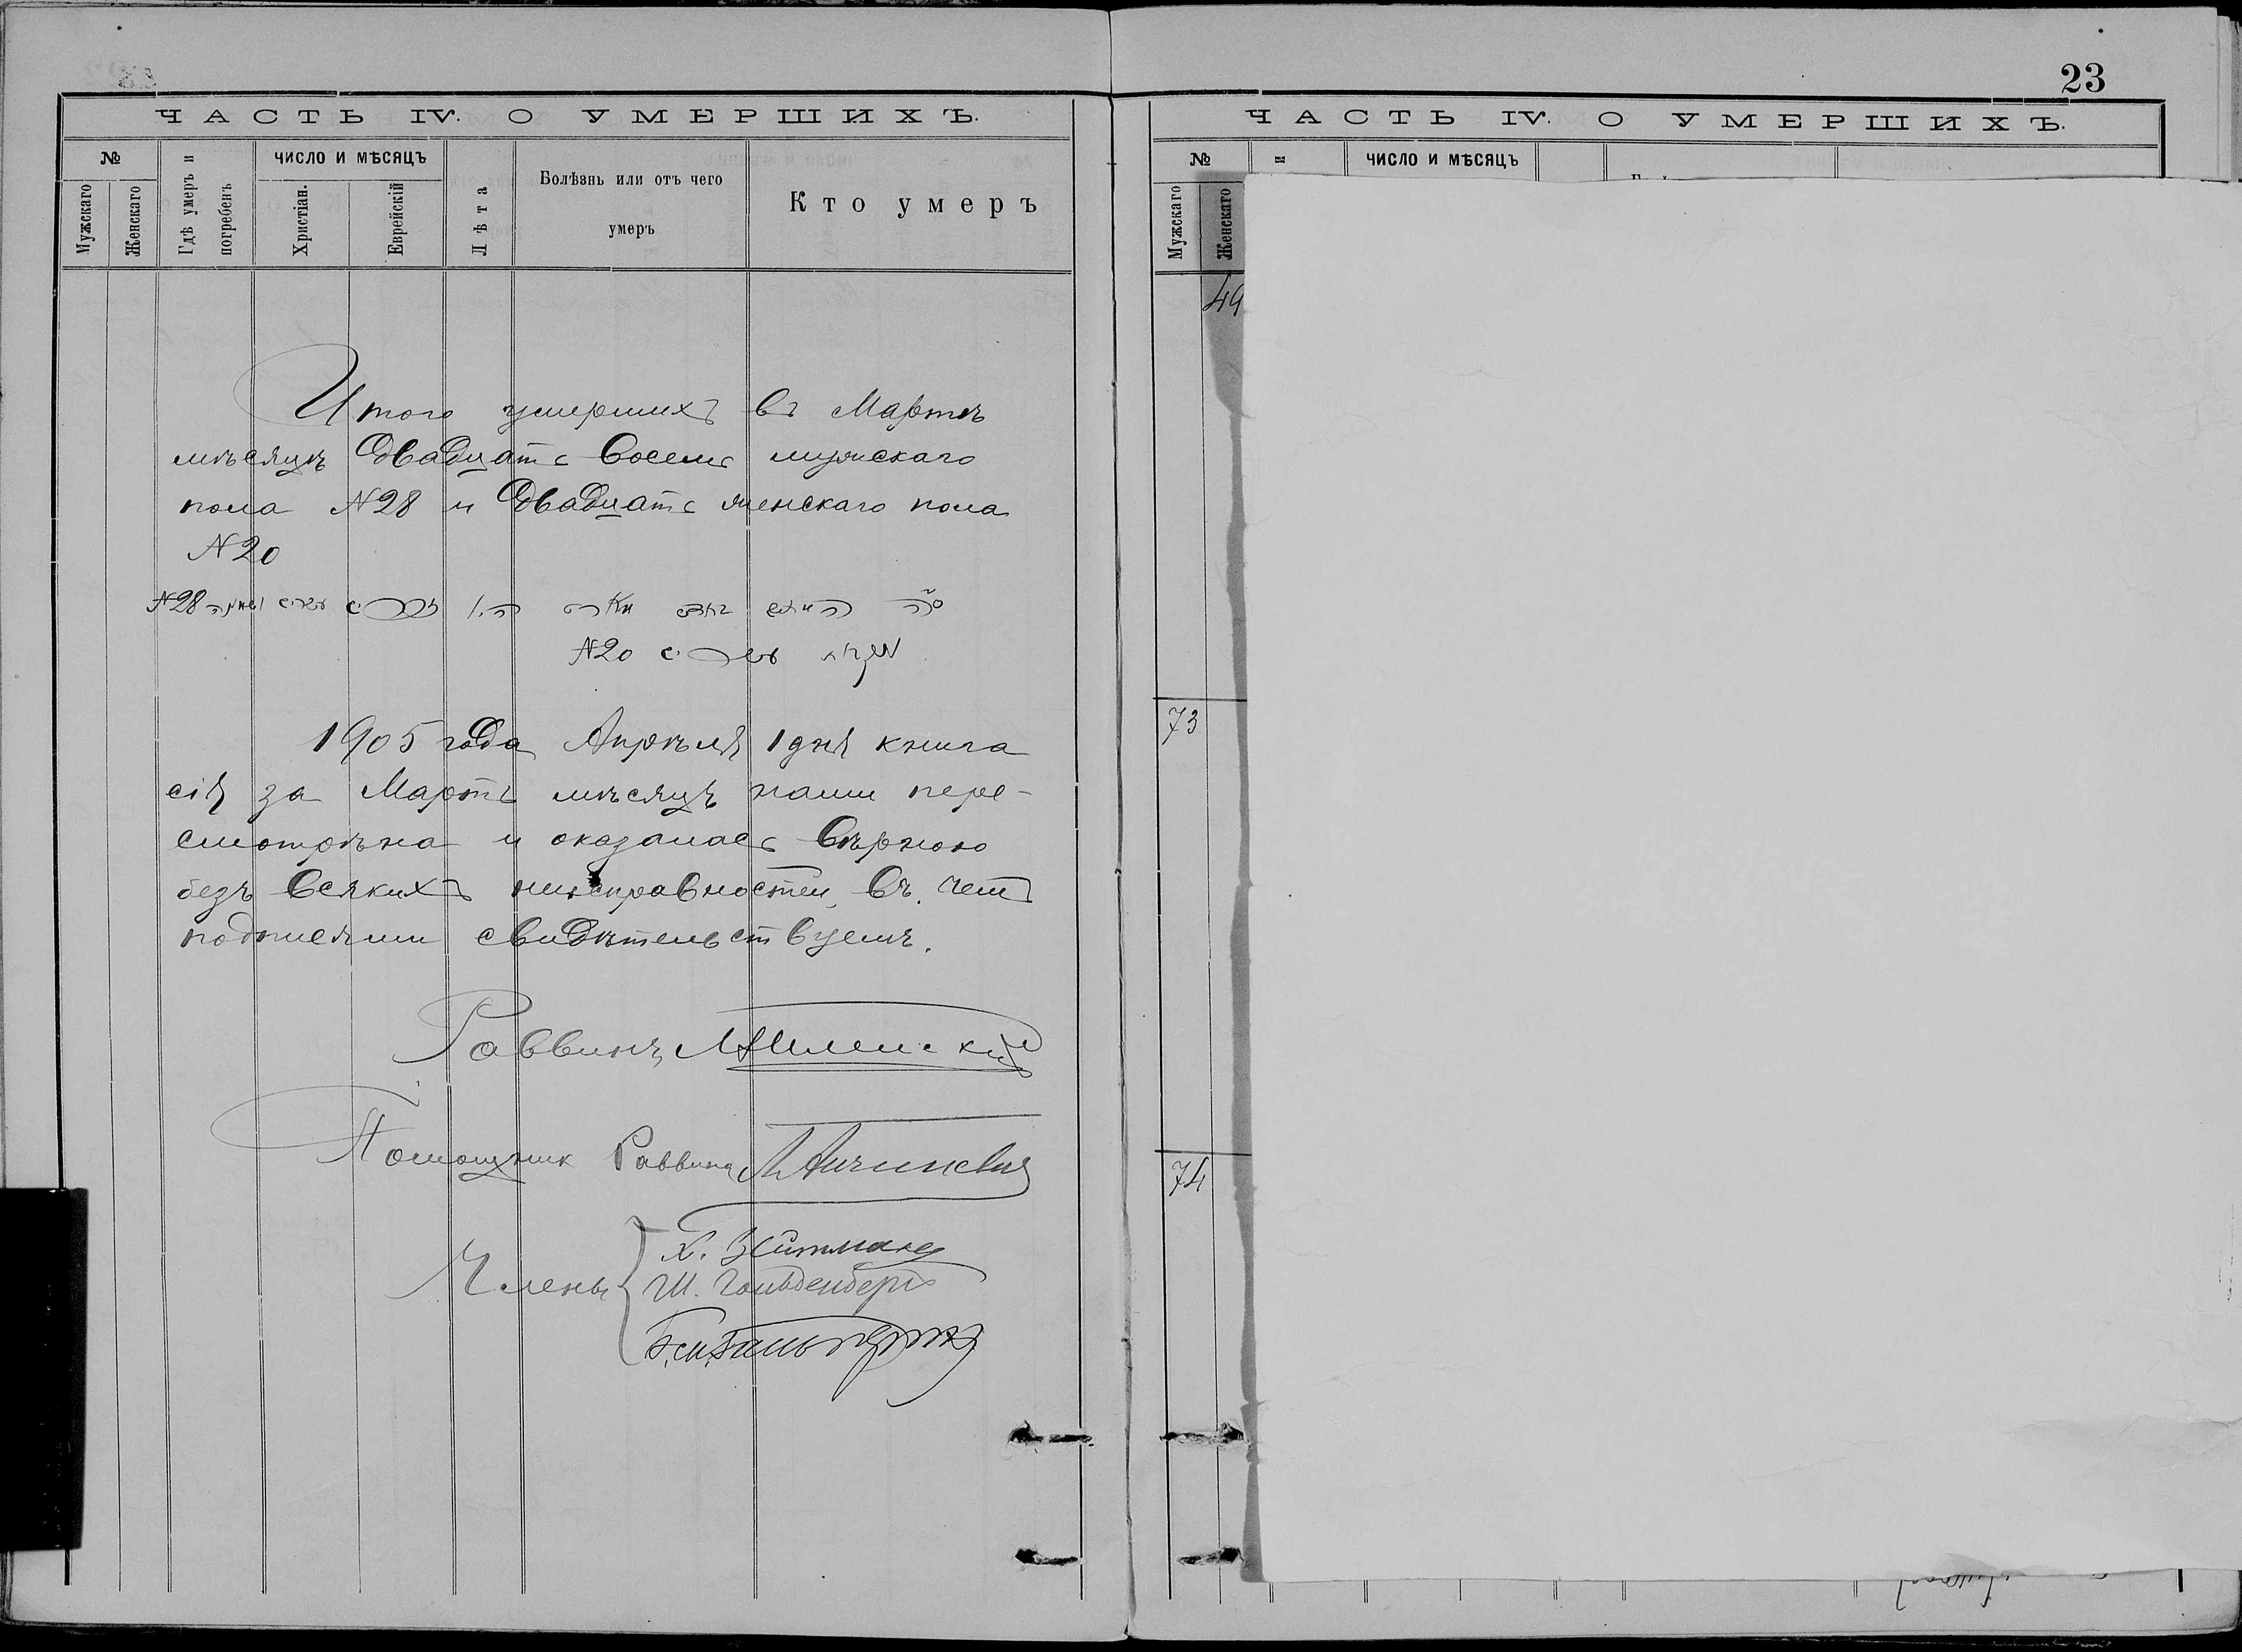 ЧАСТЬ IV. О УМЕРШИХЪ.
№
Мужскаго
Женскаго
Гдѣ умеръ и погребенъ
ЧИСЛО И МѢСЯЦЪ
Христіан.
Еврейскій
Лѣта
Болѣзнь или отъ чего
умеръ
Кто умеръ
Итого умершихъ въ Мартѣ
мѣсяцѣ двадцать восемь мужскаго
пола №28 и двадцать женскаго пола
№20
№28
№20
1905 года Апрѣля 1 дня книга
сія за Мартъ мѣсяцъ нами пере-
смотрѣна и оказалась вѣрною
безъ всякихъ неисправностей, въ чемъ
подписями свидѣтельствуемъ.
Раввинъ
Помощник Раввина
Члены
Ш. Гольденбергъ
23
ЧАСТЬ IV. О УМЕРШИХЪ.
№
Мужскаго
Женскаго
и
ЧИСЛО И МѢСЯЦЪ
49
73
74